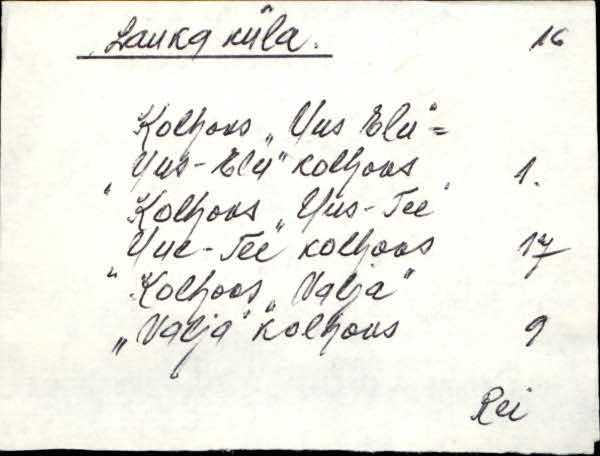 Lauka küla. 16
Kolhoos „Uus Elu"=
„Uus-Elu" kolhoos 1.
Kolhoos „Uus-Tee"
„Uue-Tee" kolhoos 17
Kolhoos „Valja"
„Valja" kolhoos 9
Rei